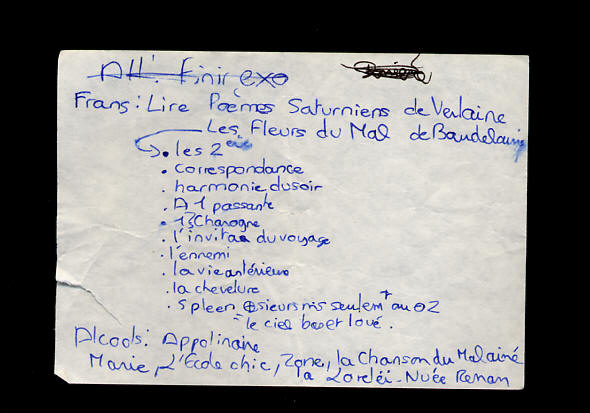 All: finir exo
Frans: Lire Poèmes Saturniens de Verlaine
Les Fleurs du Mal de Baudelaire
. les 2 ers
. correspondance
. harmonie du soir
. A 1 passante
. 1 Charogne
. l'invita° du voyage
. l'ennemi
. la vie antérieure
. la chevelure
. spleen ⊕sieurs ms seulem^t au 2
le ciel bas et
Alcools: Appolinaire
Marie, Zone, la Chanson du Mal aimé
la Loreléi - Nuée Renan